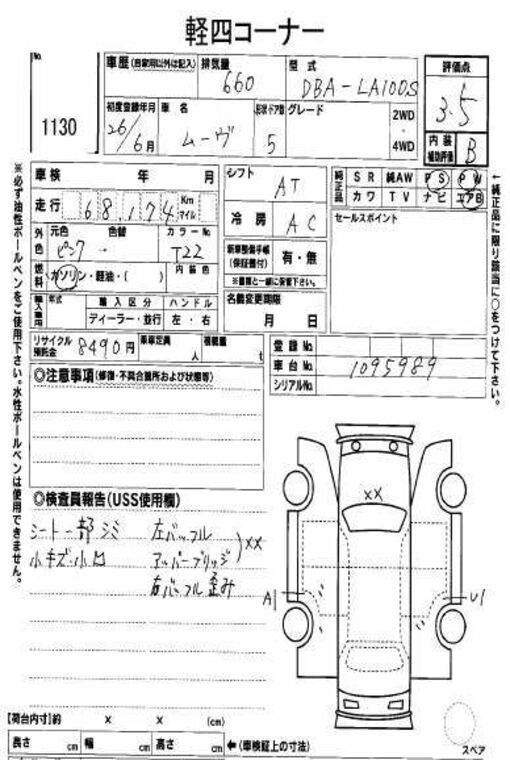 軽四コーナー
No.
1130
車歴 (自家用以外は記入)
排気量
660
型式
DBA-LA100S
評価点
3.5
初度登録年月
26/6月
車名
ムーヴ
形状ドア数
5
グレード
2WD
・
4WD
内装
補助評価
B
車検 年 月
シフト
AT
純正品
SR 純AW PS PW
カワ TV ナビ エアB
走行 68,174 Km マイル
冷房
AC
セールスポイント
外色
元色 色替
ピンク ・
カラーNo
T22
新車整備手帳
(保証書付)
有・無
※書類と一緒に保管下さい。
燃料
ガソリン・軽油・( )
内装色
輸入車用
年式
輸入区分
ハンドル
ディーラー・並行
左・右
名義変更期限
月 日
リサイクル預託金
8490円
乗車定員
人
積載量
t
登録No.
車台No.
1095989
シリアルNo.
◎注意事項 (修復・不具合箇所および状態等)
◎検査員報告 (USS使用欄)
シート一部シミ 左バッフル
小キズ・小凹 アッパーブリッジ )××
右バッフル歪み
××
A1
U1
【荷台内寸】約 × × (cm)
長さ cm 幅 cm 高さ cm ←(車検証上の寸法)
スペア
※必ず油性ボールペンをご使用下さい。水性ボールペンは使用できません。
←純正品に限り該当に○をつけて下さい。